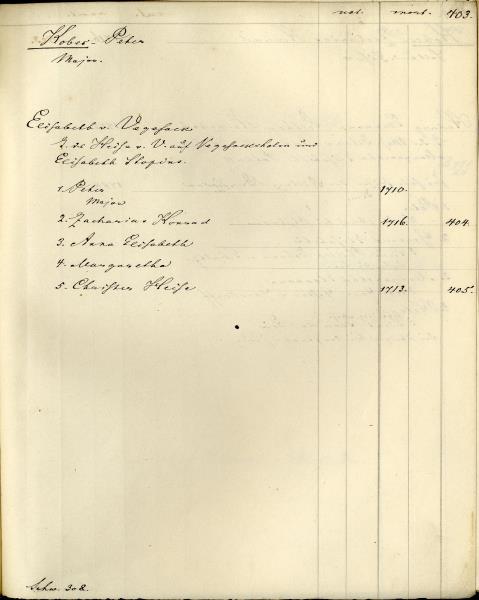 nat. mort. 403.
Kober Peter
Major.
Elisabeth v. Vegesack
T. de Heise v. V. auf Vegesacksholm und
Elisabeth Stopius.
1. Peter 1710.
Major
2. Zacharias Konrad 1716. 404.
3. Anna Elisabeth
4. Margaretha
5. Christer Heise 1713. 405.
Schw. 302.